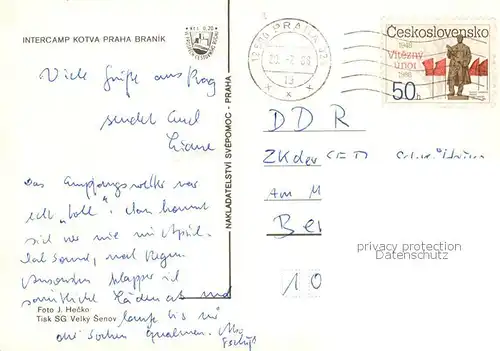 INTERCAMP KOTVA PRAHA BRANÍK
Viele Grüße aus Prag
sendet Euch
Das Empfangswetter war
echt "toll". Man kommt
sich vor wie im April.
Mal Sonne, mal Regen.
Ansonsten klapper ich
sämtliche Läden ab und
laufe bis mir
die Socken qualmen.
Foto J. Hečko
Tisk SG Velký Šenov
NAKLADATELSTVÍ SVÉPOMOC - PRAHA
PRAHA
Československo
1948
Vítězný
únor
1988
50h
DDR
ZK der SED
Am M
Be
10
privacy protection
Datenschutz